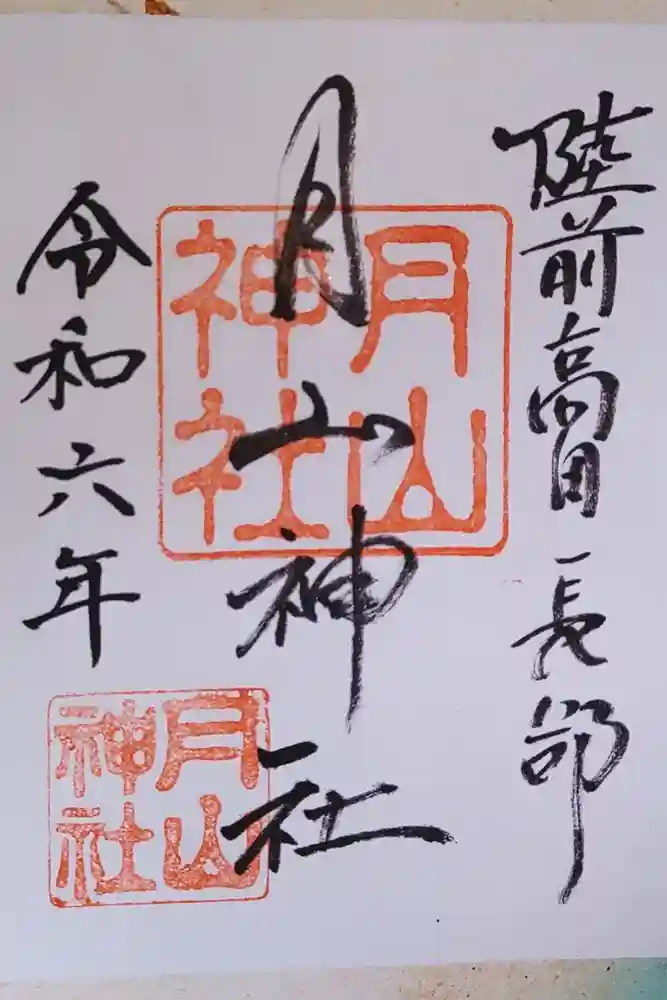 陸前高田長部
月山神社
令和六年
月山
神社
月山
神社